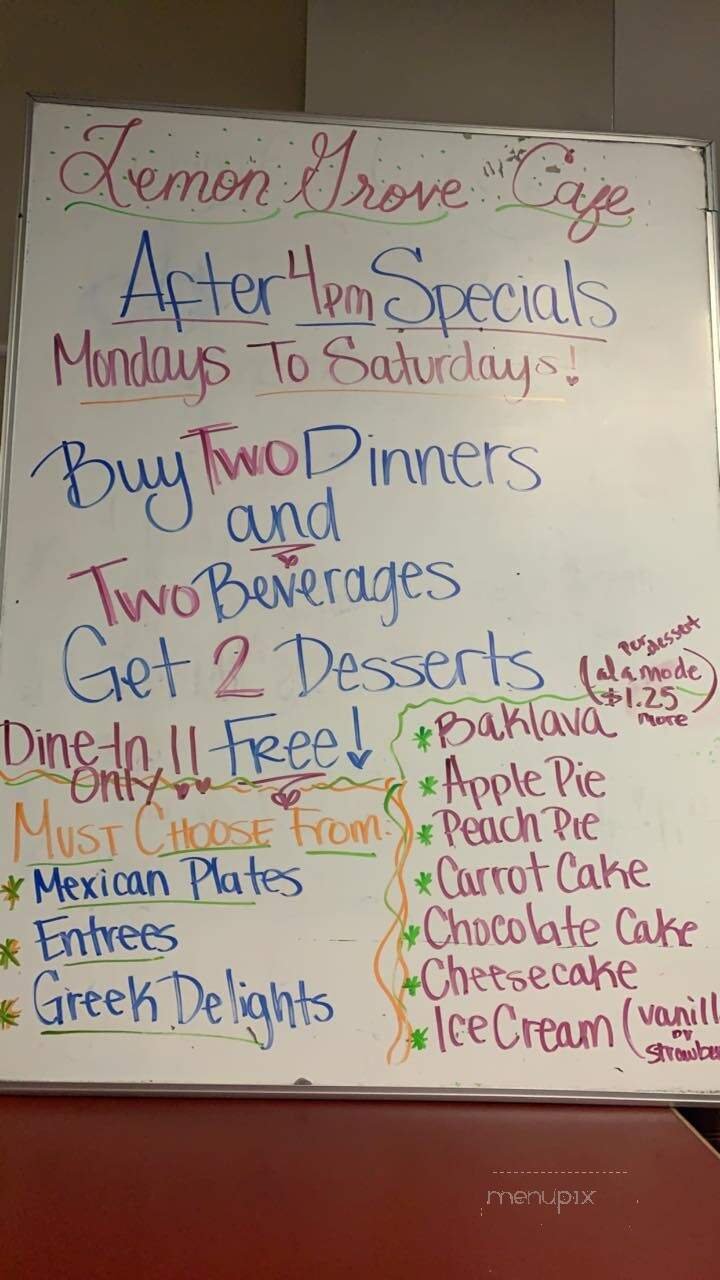 Lemon Grove Cafe
After 4pm Specials
Mondays To Saturdays!
Buy Two Dinners
and
Two Beverages
Get 2 Desserts
Dine-In !! Free!
Only
Must Choose From:
* Mexican Plates
* Entrees
* Greek Delights
per dessert
(al a mode
$1.25)
more
* Baklava
* Apple Pie
* Peach Pie
* Carrot Cake
* Chocolate Cake
* Cheesecake
* Ice Cream (vanill
or
strawbe
menupix